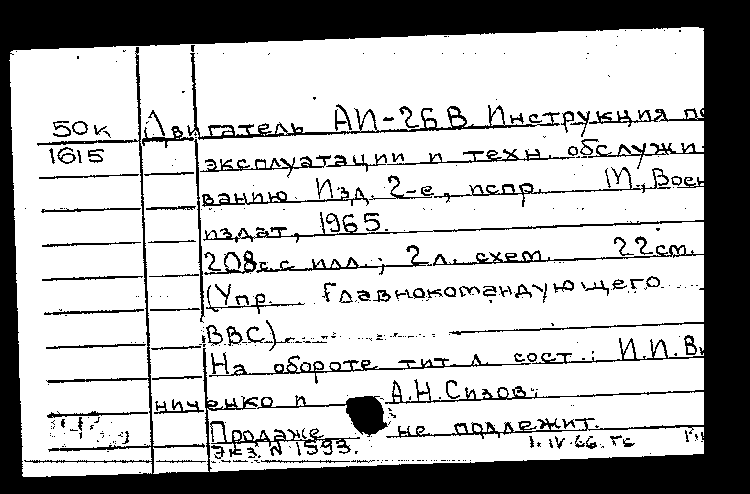 50к Двигатель АИ-26В. Инструкция по
1615 эксплуатации и техн. обслужи-
ванию. Изд. 2-е, испр. М., Воен
издат, 1965.
208с. с илл.; 2л. схем. 22см.
(Упр. Главнокомандующего
ВВС).
На обороте тит. л. сост.: И.И.
ниченко и А.Н.Сизов.
Продаже не подлежит.
Экз. N 1593. 1.IV.66.